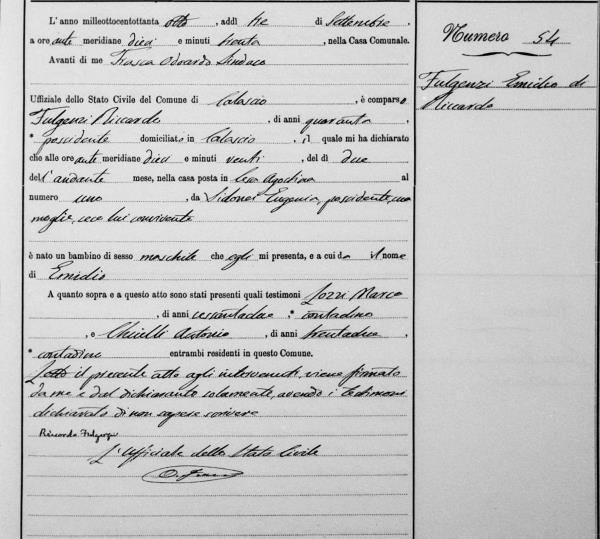 L'anno milleottocentottanta otto, addì tre di Settembre,
a ore ante meridiane dieci e minuti trenta, nella Casa Comunale.
Avanti di me Frasca Odoardo Sindaco
Numero 54
Uffiziale dello Stato Civile del Comune di Calascio, è comparso
Fulgenzi Riccardo, di anni quaranta,
* possidente domiciliato in Calascio, il quale mi ha dichiarato
che alle ore ante meridiane dieci e minuti venti, del dì due
del l'andante mese, nella casa posta in Agostina al
numero uno, da Eugenia, possidente, sua
moglie, seco lui convivente
è nato un bambino di sesso maschile che egli mi presenta, e a cui dà il nome
di Emidio
A quanto sopra e a questo atto sono stati presenti quali testimoni Marco
, di anni sessantadue, * contadino
, e Antonio, di anni trentadue,
* contadino entrambi residenti in questo Comune.
Letto il presente atto agli intervenuti, viene firmato
da me e dal dichiarante solamente, avendo i testimoni
dichiarato di non sapere scrivere
Riccardo Fulgenzi
L'Uffiziale dello Stato Civile
Fulgenzi Emidio di
Riccardo